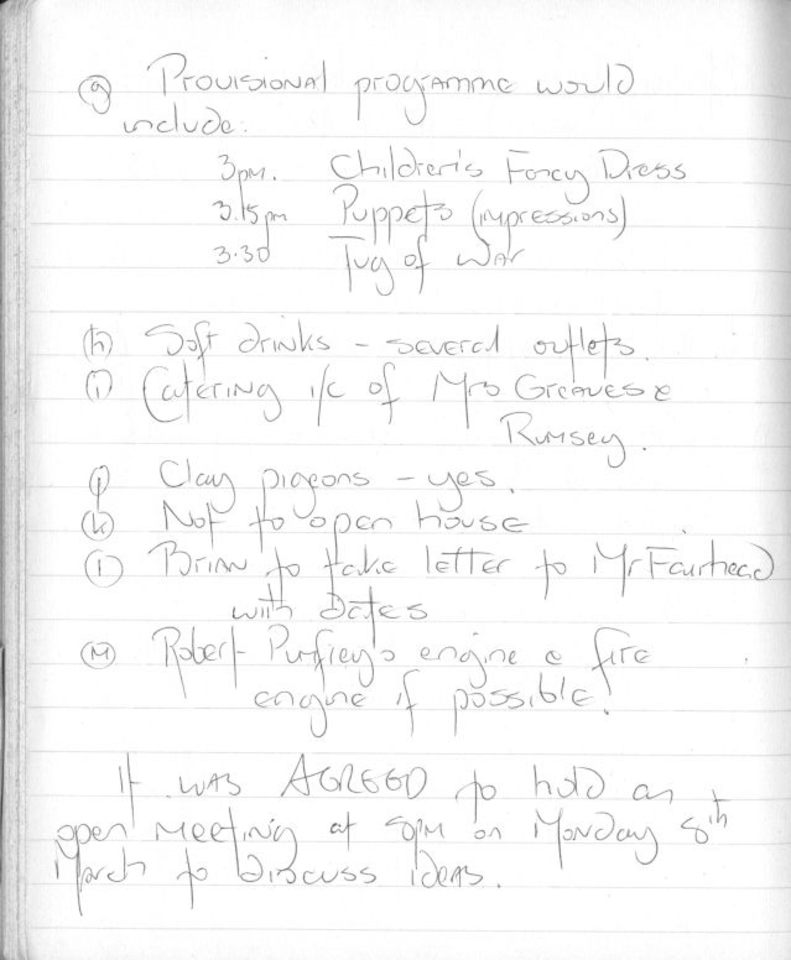 (g) Provisional programme would
include:
3pm. Children's Fancy Dress
3.15pm Puppets (impressions)
3.30 Tug of War
(h) Soft drinks - several outlets.
(i) Catering i/c of Mrs Greaves &
Rumsey.
(j) Clay pigeons - yes.
(k) Not to open house
(l) Brian to take letter to Mr Fairhead
with dates
(M) Robert engine & fire
engine if possible!
It was AGREED to hold an
open meeting at 8pm on Monday 8th
March to discuss ideas.